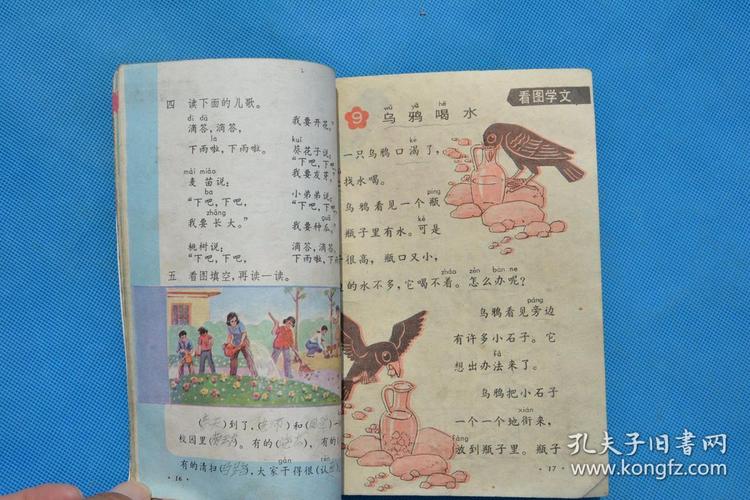 四 读下面的儿歌。
dī dā
滴答,滴答,
la
下雨啦,下雨啦。
mài miáo
麦苗说:
ba
“下吧,下吧,
zhǎng
我要长大。”
桃树说:
“下吧,下吧,
我要开花。”
kuí
葵花子说:
“下吧,下吧,
我要发芽。”
小弟弟说:
“下吧,下吧,
guā
我要种瓜。”
滴答,滴答,
下雨啦,下雨
五 看图填空,再读一读。
到了,( )和( )一
校园里( )。有的( ),有的
gàn
有的清扫( ),大家干得很(认
·16·
看图学文
9 乌鸦喝水
wū yā hē
kě
一只乌鸦口渴了,
找水喝。
píng
乌鸦看见一个瓶
kě
瓶子里有水。可是
很高,瓶口又小,
zháo zěn bàn ne
的水不多,它喝不着。怎么办呢?
páng
乌鸦看见旁边
有许多小石子。它
fǎ
想出办法来了。
乌鸦把小石子
xián
一个一个地衔来,
fàng
放到瓶子里。瓶子
·17·
孔夫子旧书网
www.kongfz.com